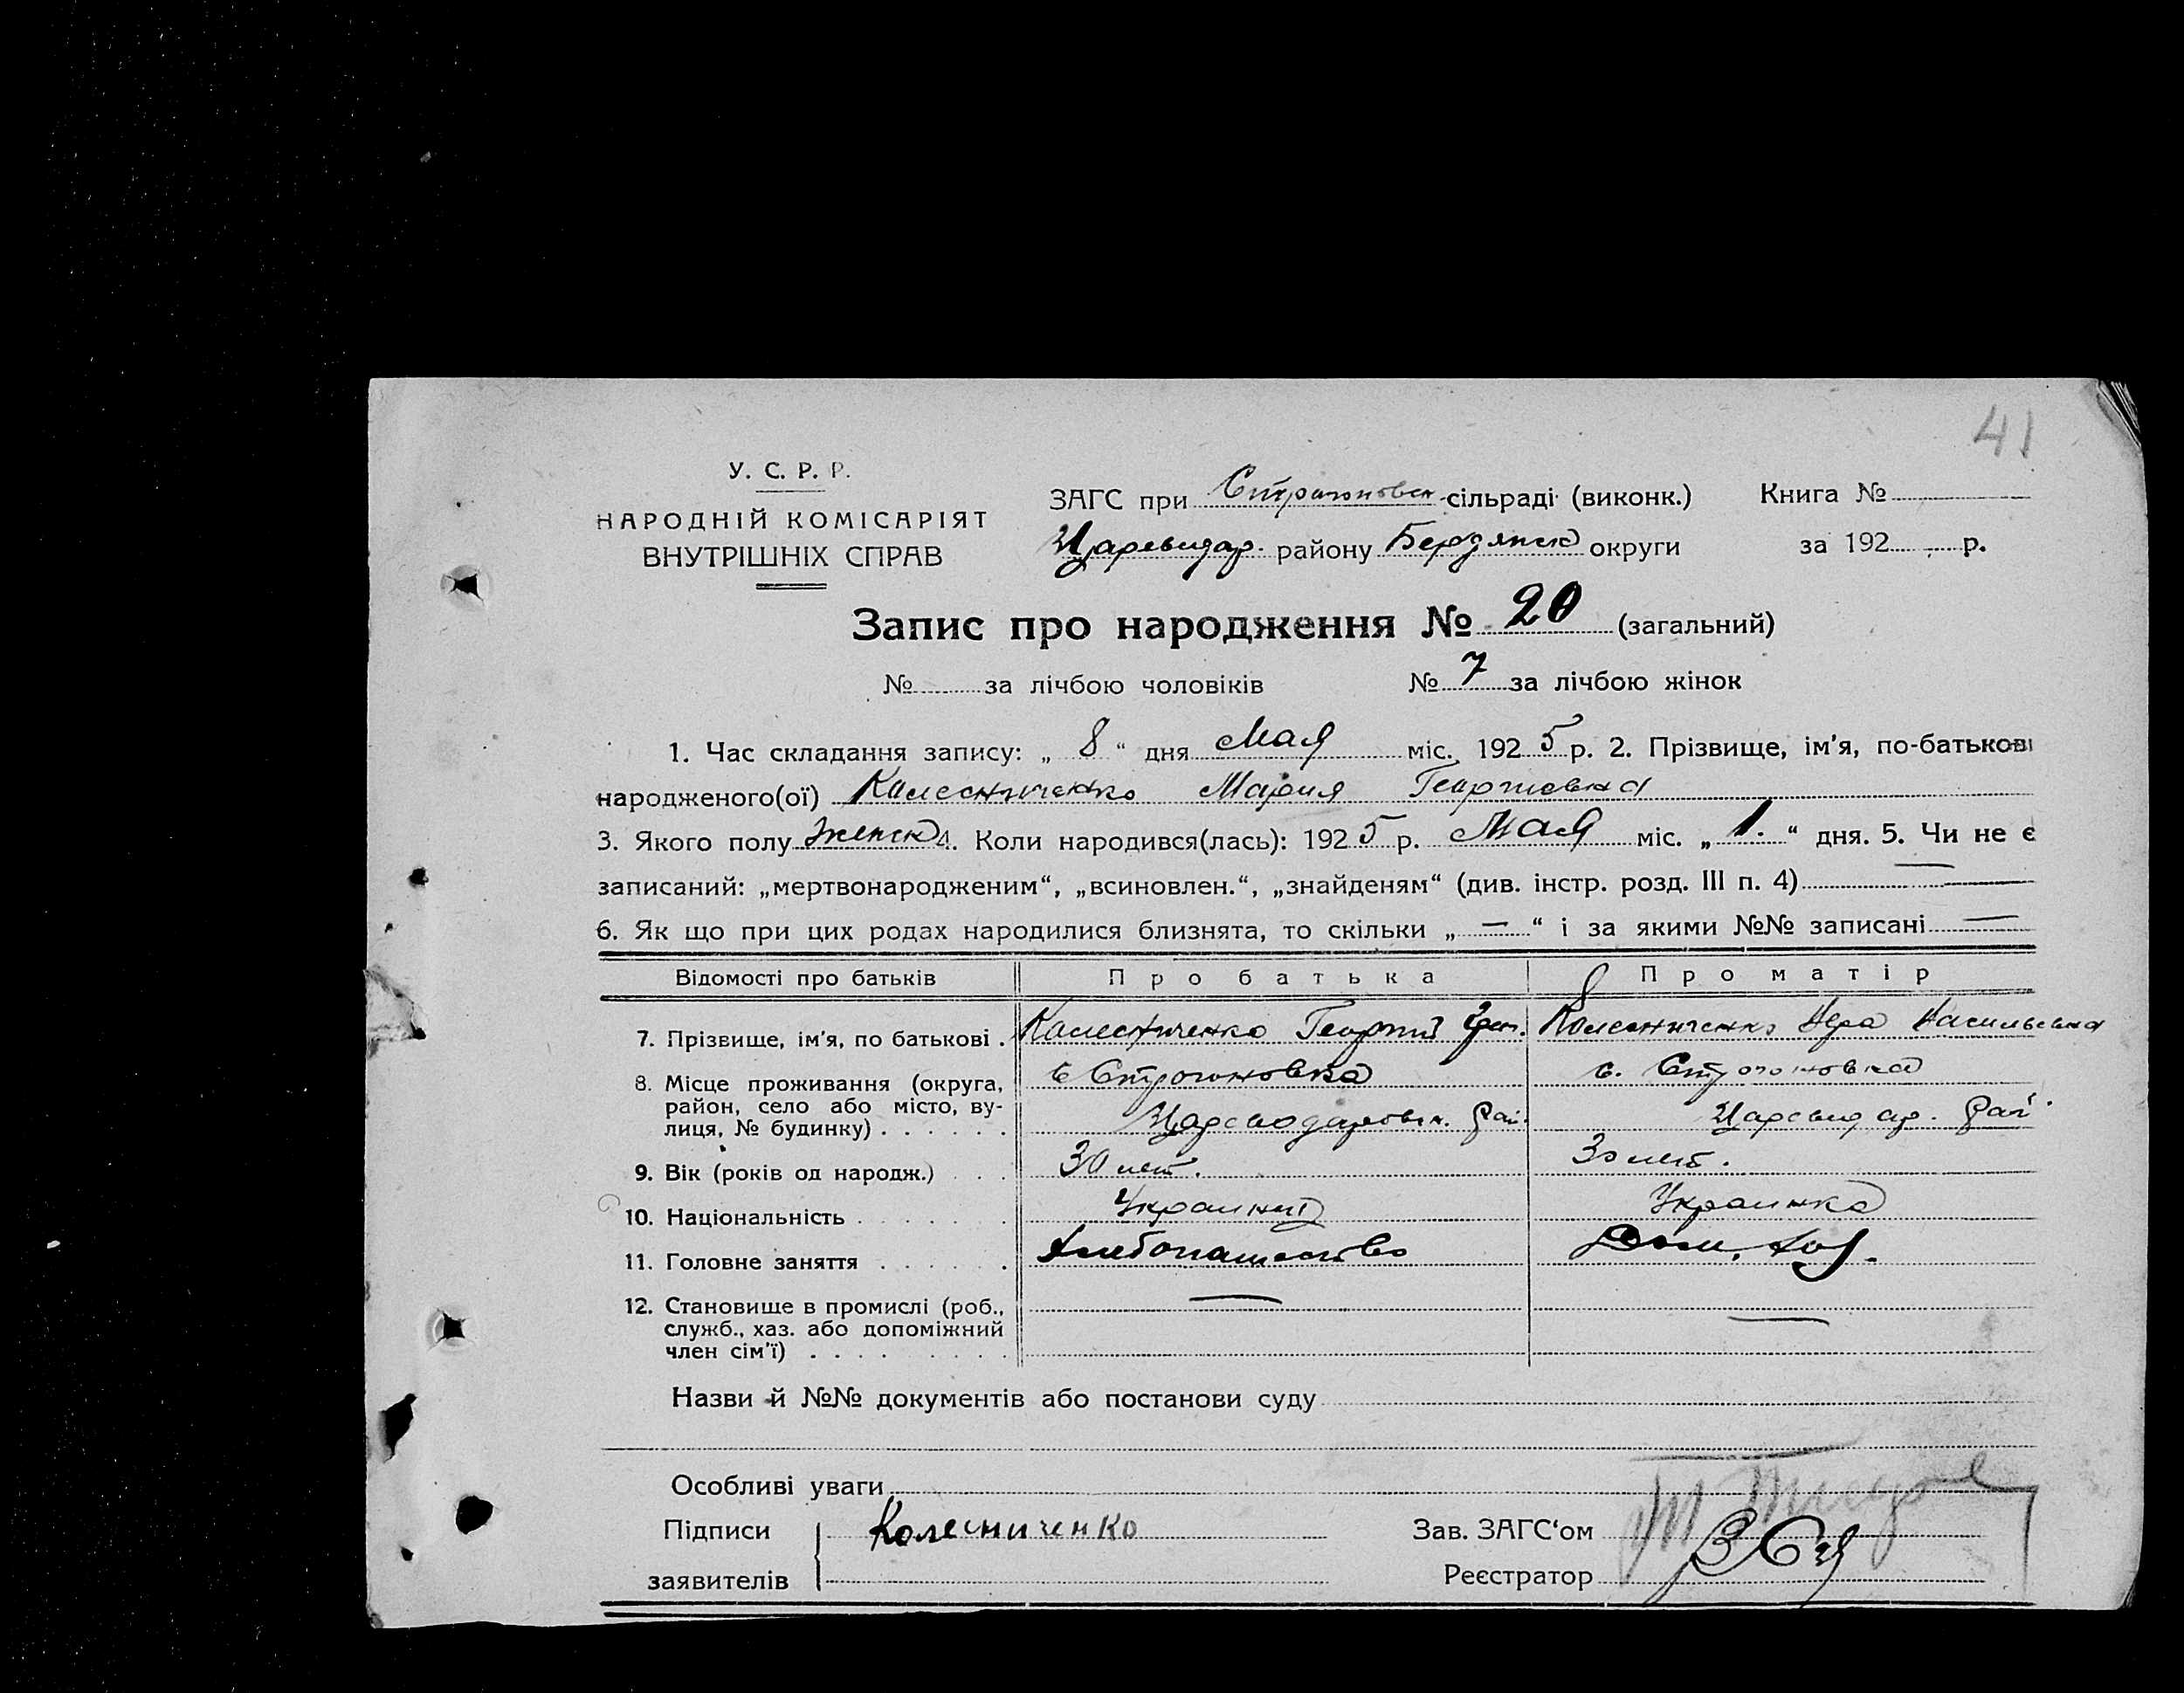 41
У. С. Р. Р.
НАРОДНІЙ КОМІСАРІЯТ
ВНУТРІШНІХ СПРАВ
ЗАГС при Строгоновск. сільраді (виконк.) Книга №
Царевидар. району Бердянск округи за 192 р.
Запис про народження № 20 (загальний)
№ за лічбою чоловіків № 7 за лічбою жінок
1. Час складання запису: „ 8 “ дня Мая міс. 1925 р. 2. Прізвище, ім’я, по-батькові
народженого(ої) Колесниченко Мария Георгиевна
3. Якого полу женск 4. Коли народився(лась): 1925 р. Мая міс. „ 1. “ дня. 5. Чи не є
записаний: „мертвонародженим“, „всиновлен.“, „знайденям“ (див. інстр. розд. III п. 4) —
6. Як що при цих родах народилися близнята, то скільки „ — “ і за якими №№ записані —
Відомості про батьків Про батька Про матір
7. Прізвище, ім’я, по батькові . Колесниченко Георгий Григ. Колесниченко Вера Васильевна
8. Місце проживання (округа, с Строгоновка с. Строгоновка
район, село або місто, ву-
лиця, № будинку) . . . . . . Цареводаровск. рай. Царевидар. рай.
9. Вік (років од народж.) . . . 30 лет. 30 лет.
10. Національність . . . . . . . Украинец Украинка
11. Головне заняття . . . . . . Хлебопашество Дом. хоз.
12. Становище в промислі (роб., — —
служб., хаз. або допоміжний
член сім’ї) . . . . . . . . .
Назви й №№ документів або постанови суду
Особливі уваги
Підписи Колесниченко Зав. ЗАГС‘ом
заявителів Реєстратор